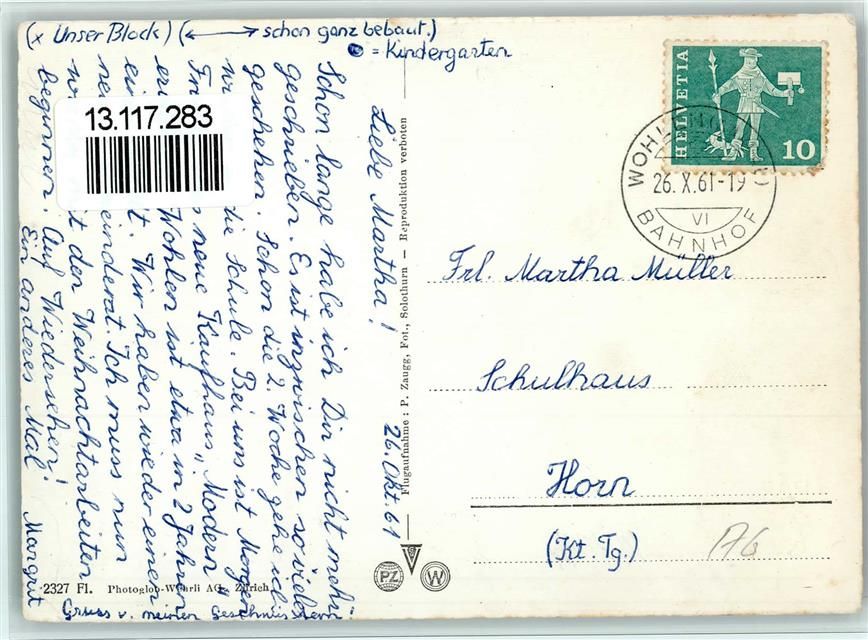 (x Unser Block) (⟷ schon ganz bebaut.)
= Kindergarten
26. Okt. 61
Liebe Martha!
Schon lange habe ich Dir nicht mehr
geschrieben. Es ist inzwischen so vieles
geschehen. Schon die 2. Woche gehe ich
die Schule. Bei uns ist Morgen
neue Kaufhaus „Modern
Wohlen ist etwa in 2 Jahren
Wir haben wieder einen
Ich muss nun
den Weihnachtarbeiten
beginnen. Auf Wiedersehen!
Ein anderes Mal
Margrit
Gruss v. meinen Geschwistern
13.117.283
2327 Fl. Photoglob-Wehrli AG, Zürich
Flugaufnahme: P. Zaugg, Fot., Solothurn — Reproduktion verboten
PZ
W
HELVETIA
10
WOHLEN
26.X.61-19
VI
BAHNHOF
Frl. Martha Müller
Schulhaus
Horn
(Kt. Tg.)